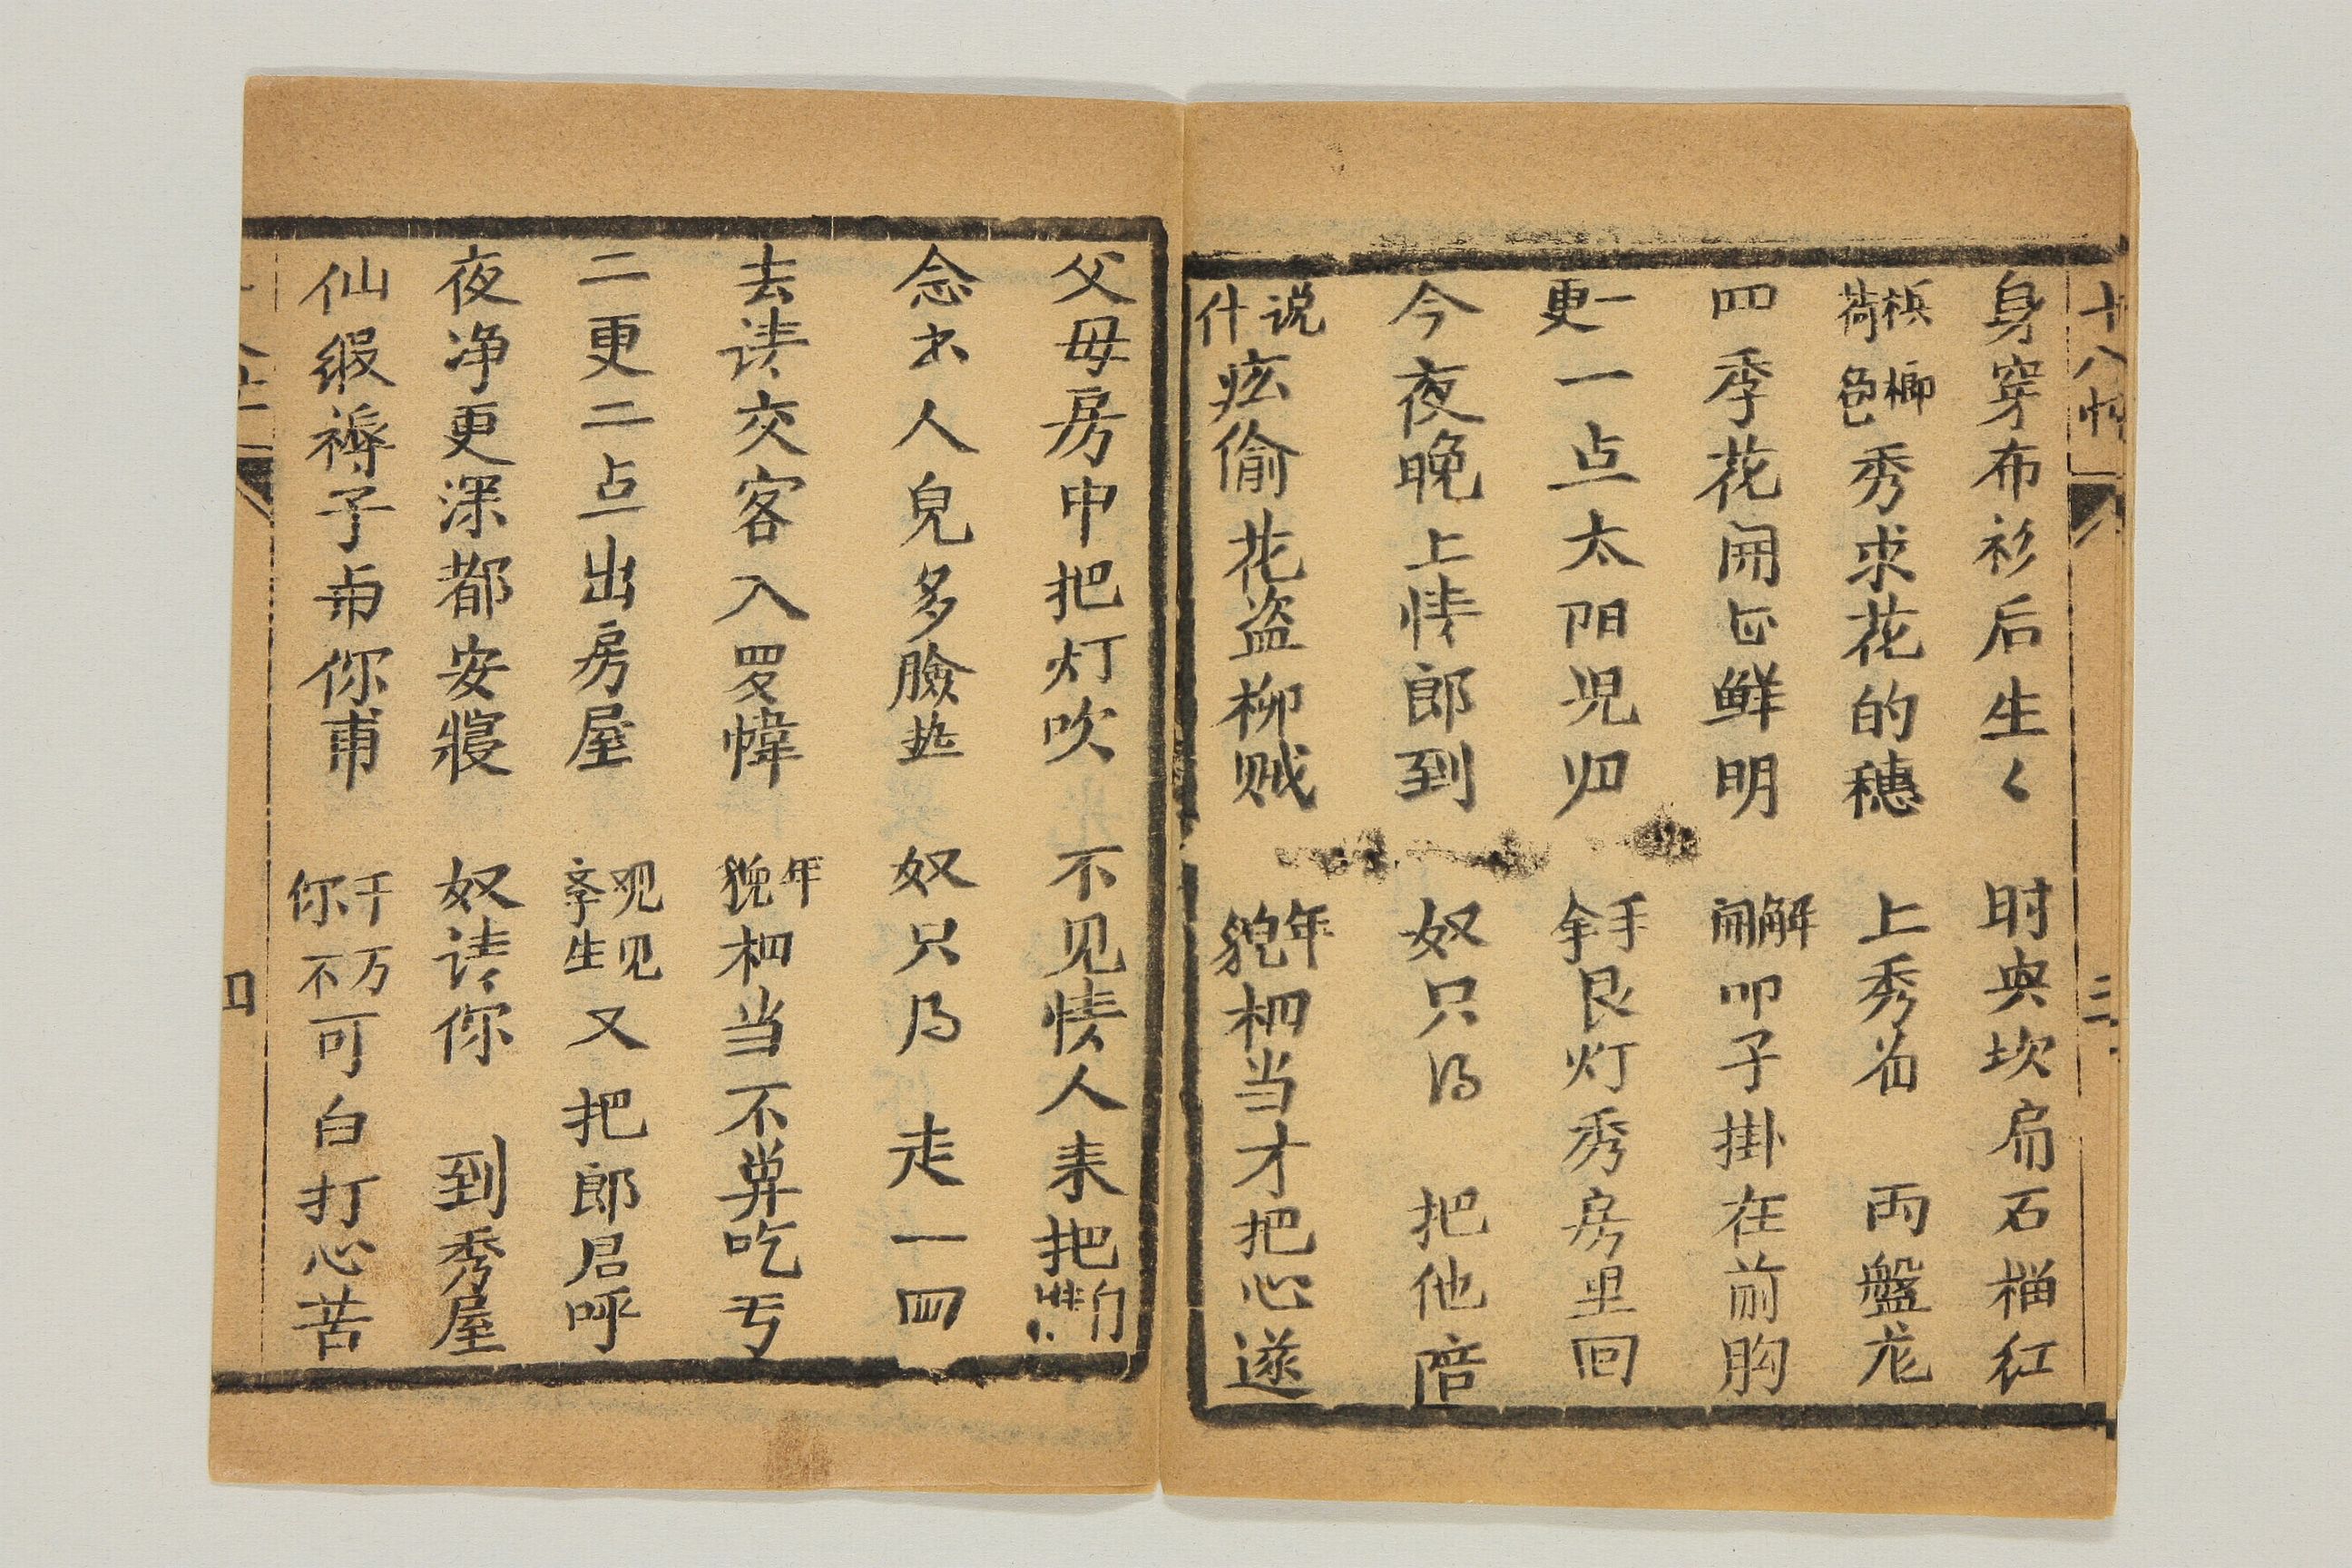 十八忖 三
身穿布衫后生〻 时央坎肩石榴红
梹榔荷色秀求花的穗 上秀着 両盤龙
四季花闹正鲜明 解闹叩子掛在前胸
一更一点太阳児归 手拿艮灯秀房里回
今夜晚上情郎到 奴只得 把他陪
说什広偷花盗柳贼 年貌相当才把心遂
父母房中把灯吹 不见情人来把
念出人皃多臉 奴只乃 走一回
去请交客入罗幃 年貌相当不算吃亏
二更二点出房屋 观见孝生又把郎君呼
夜净更深都安寝 奴请你 到秀屋
仙缎褥子 你 千万你不可白打心苦
四